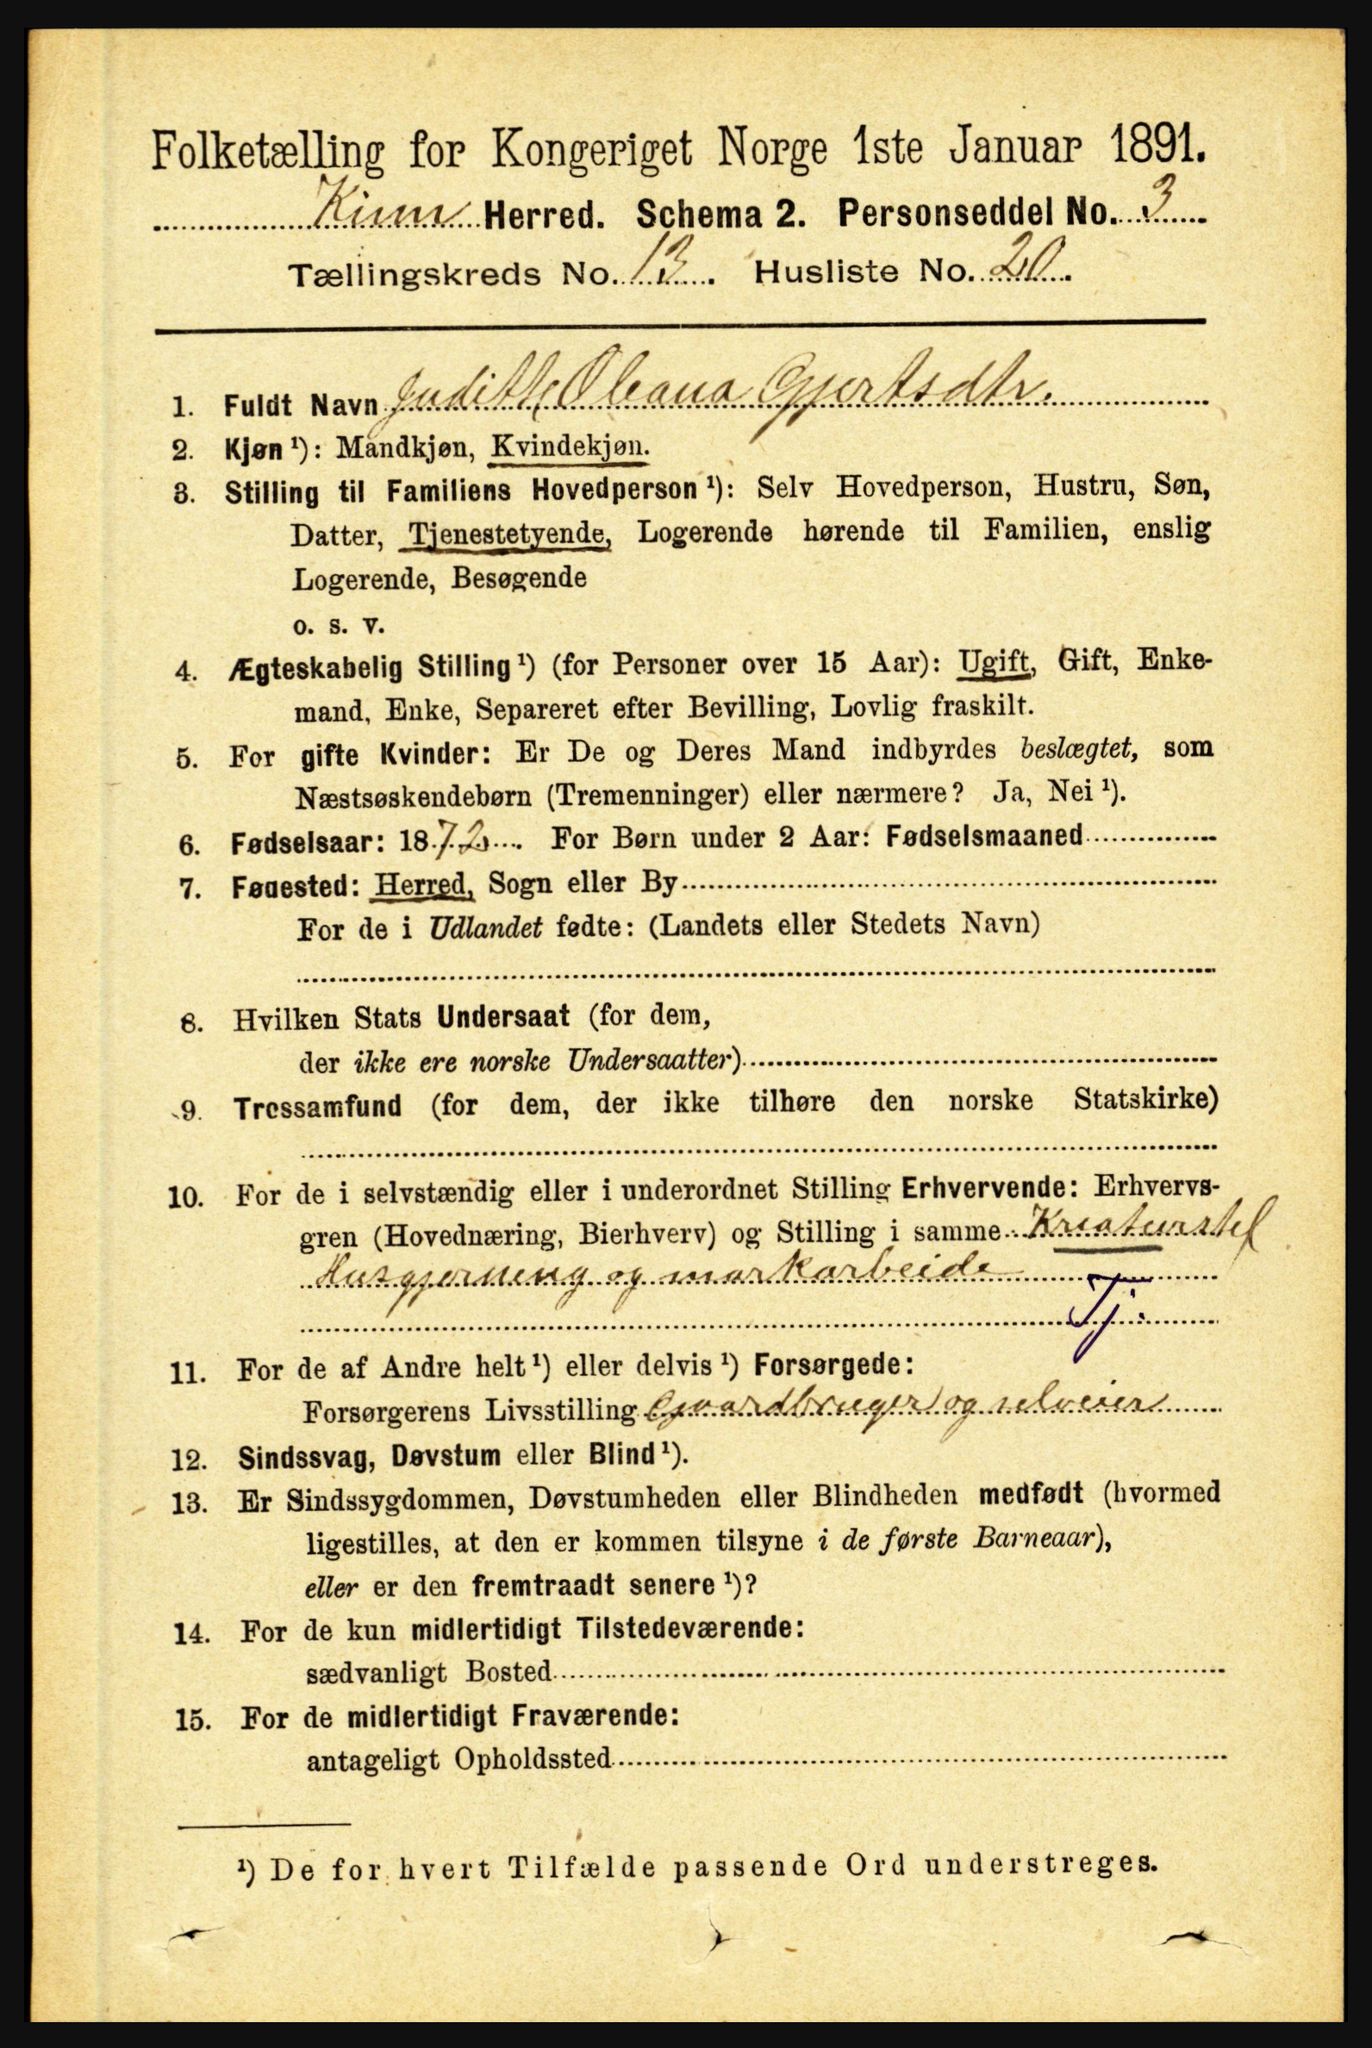 Folketælling for Kongeriget Norge 1ste Januar 1891.
Kinn Herred. Schema 2. Personseddel No. 3
Tællingskreds No. 13. Husliste No. 20.
1. Fuldt Navn Judith Oleana Gjertsdtr.
2. Kjøn ¹): Mandkjøn, Kvindekjøn.
3. Stilling til Familiens Hovedperson ¹): Selv Hovedperson, Hustru, Søn,
Datter, Tjenestetyende, Logerende hørende til Familien, enslig
Logerende, Besøgende
o. s. v.
4. Ægteskabelig Stilling ¹) (for Personer over 15 Aar): Ugift, Gift, Enke-
mand, Enke, Separeret efter Bevilling, Lovlig fraskilt.
5. For gifte Kvinder: Er De og Deres Mand indbyrdes beslægtet, som
Næstsøskendebørn (Tremenninger) eller nærmere? Ja, Nei ¹).
6. Fødselsaar: 1872. For Børn under 2 Aar: Fødselsmaaned
7. Fødested: Herred, Sogn eller By
For de i Udlandet fødte: (Landets eller Stedets Navn)
8. Hvilken Stats Undersaat (for dem,
der ikke ere norske Undersaatter)
9. Trossamfund (for dem, der ikke tilhøre den norske Statskirke)
10. For de i selvstændig eller i underordnet Stilling Erhvervende: Erhvervs-
gren (Hovednæring, Bierhverv) og Stilling i samme Kreaturstel
Husgjerning og markarbeide
Tj.
11. For de af Andre helt ¹) eller delvis ¹) Forsørgede:
Forsørgerens Livsstilling Gaardbruger og selveier
12. Sindssvag, Døvstum eller Blind ¹).
13. Er Sindssygdommen, Døvstumheden eller Blindheden medfødt (hvormed
ligestilles, at den er kommen tilsyne i de første Barneaar),
eller er den fremtraadt senere ¹)?
14. For de kun midlertidigt Tilstedeværende:
sædvanligt Bosted
15. For de midlertidigt Fraværende:
antageligt Opholdssted
¹) De for hvert Tilfælde passende Ord understreges.